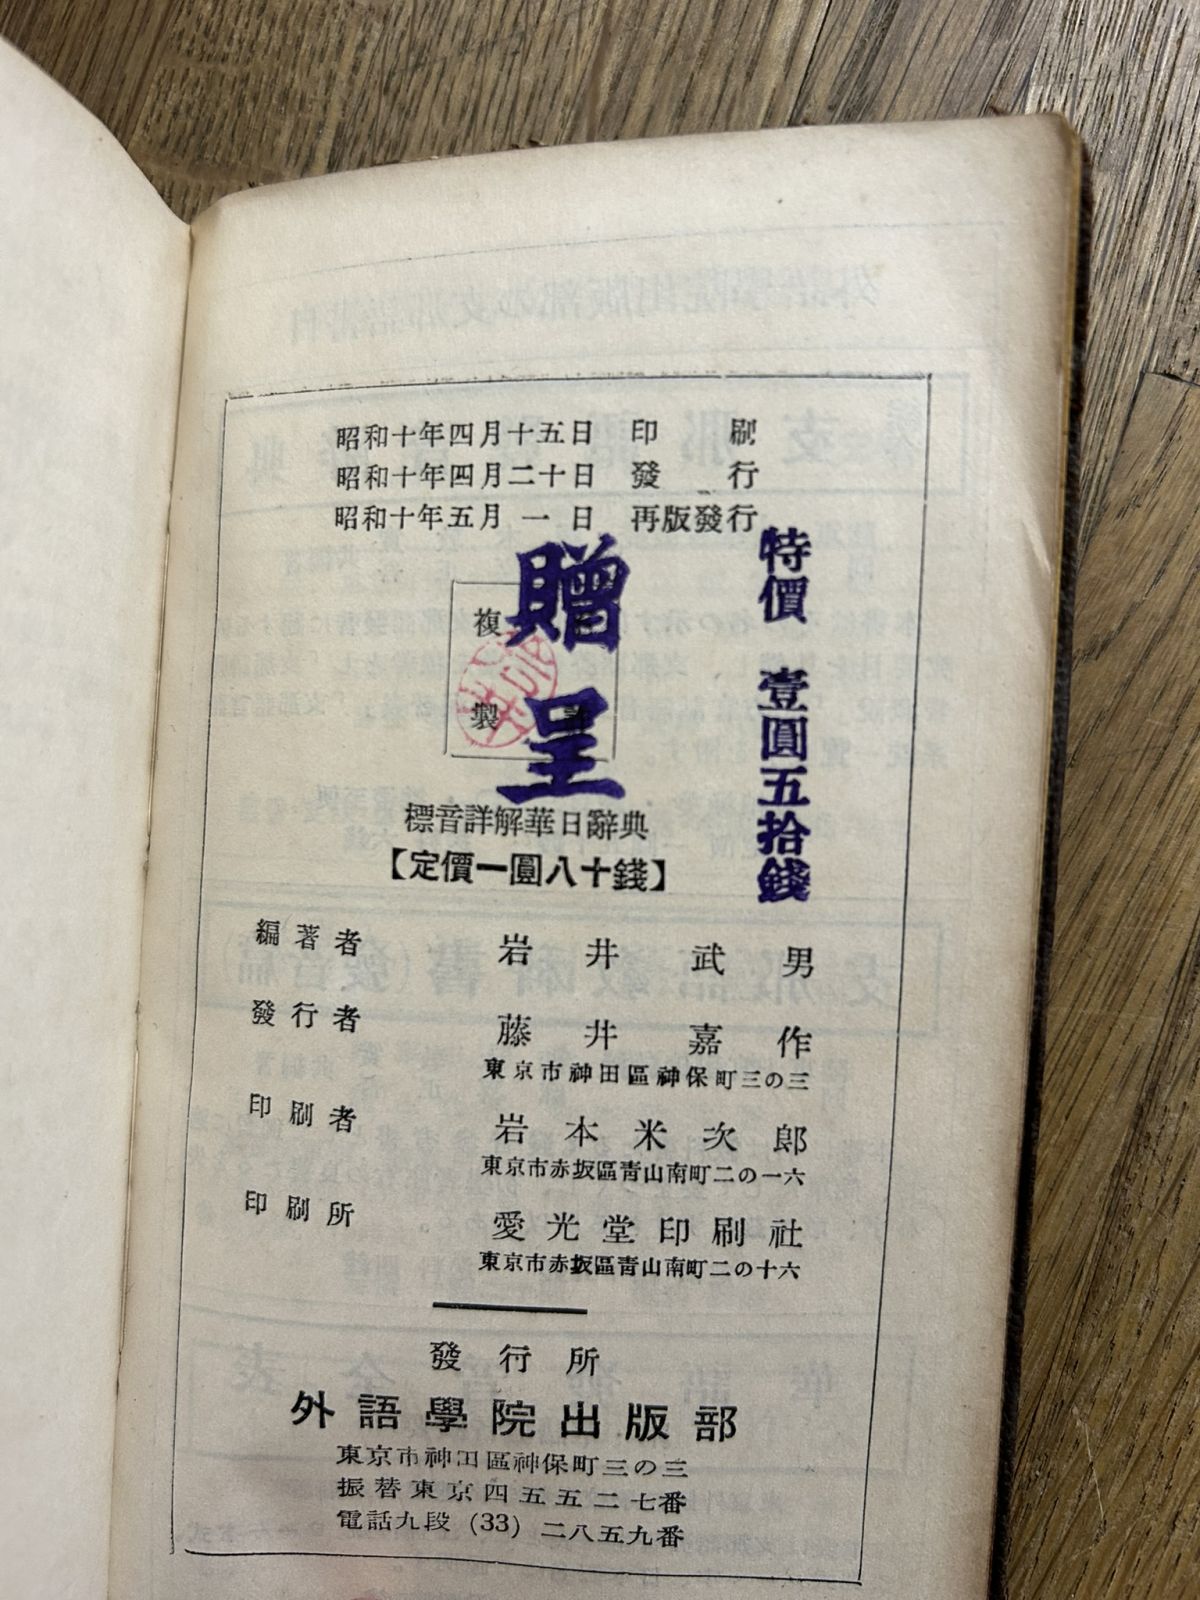 昭和十年四月十五日 印刷
昭和十年四月二十日 發行
昭和十年五月一日 再版發行
特價 壹圓五拾錢
贈呈
複製
標音詳解華日辭典
【定價一圓八十錢】
編著者 岩井武男
發行者 藤井嘉作
東京市神田區神保町三の三
印刷者 岩本米次郎
東京市赤坂區靑山南町二の一六
印刷所 愛光堂印刷社
東京市赤坂區靑山南町二の十六
發行所
外語學院出版部
東京市神田區神保町三の三
振替東京四五五二七番
電話九段 (33) 二八五九番